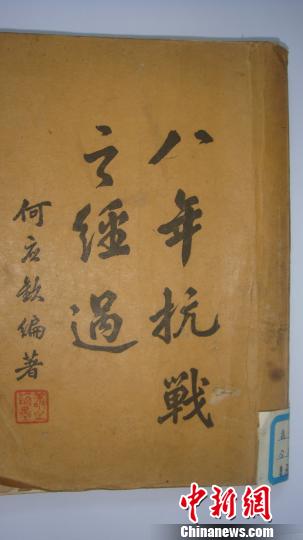 八年抗戰
之經過
何应欽編著
中新網
Chinanews.com